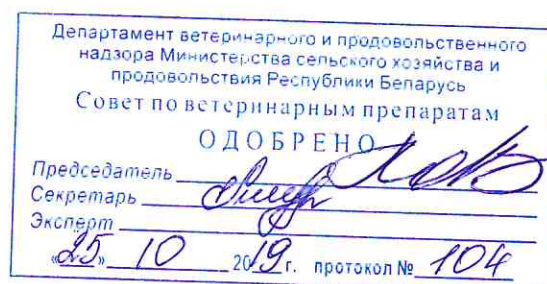 Департамент ветеринарного и продовольственного
надзора Министерства сельского хозяйства и
продовольствия Республики Беларусь
Совет по ветеринарным препаратам
ОДОБРЕНО
Председатель
Секретарь
Эксперт
«25» 10 2019 г. протокол № 104